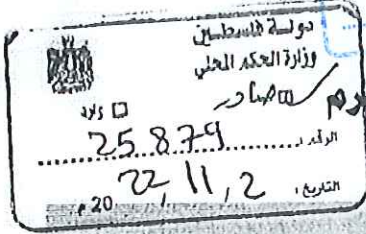 دولة فلسطين
وزارة الحكم المحلي
صادر ☐ وارد
الرقم: 25879
التاريخ: 22, 11, 2 20 م